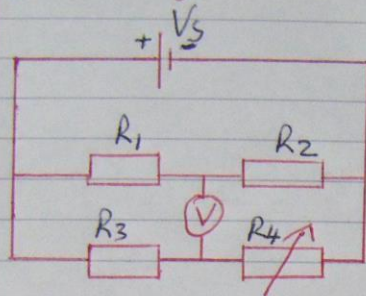 + Vs
R1 R2
V
R3 R4